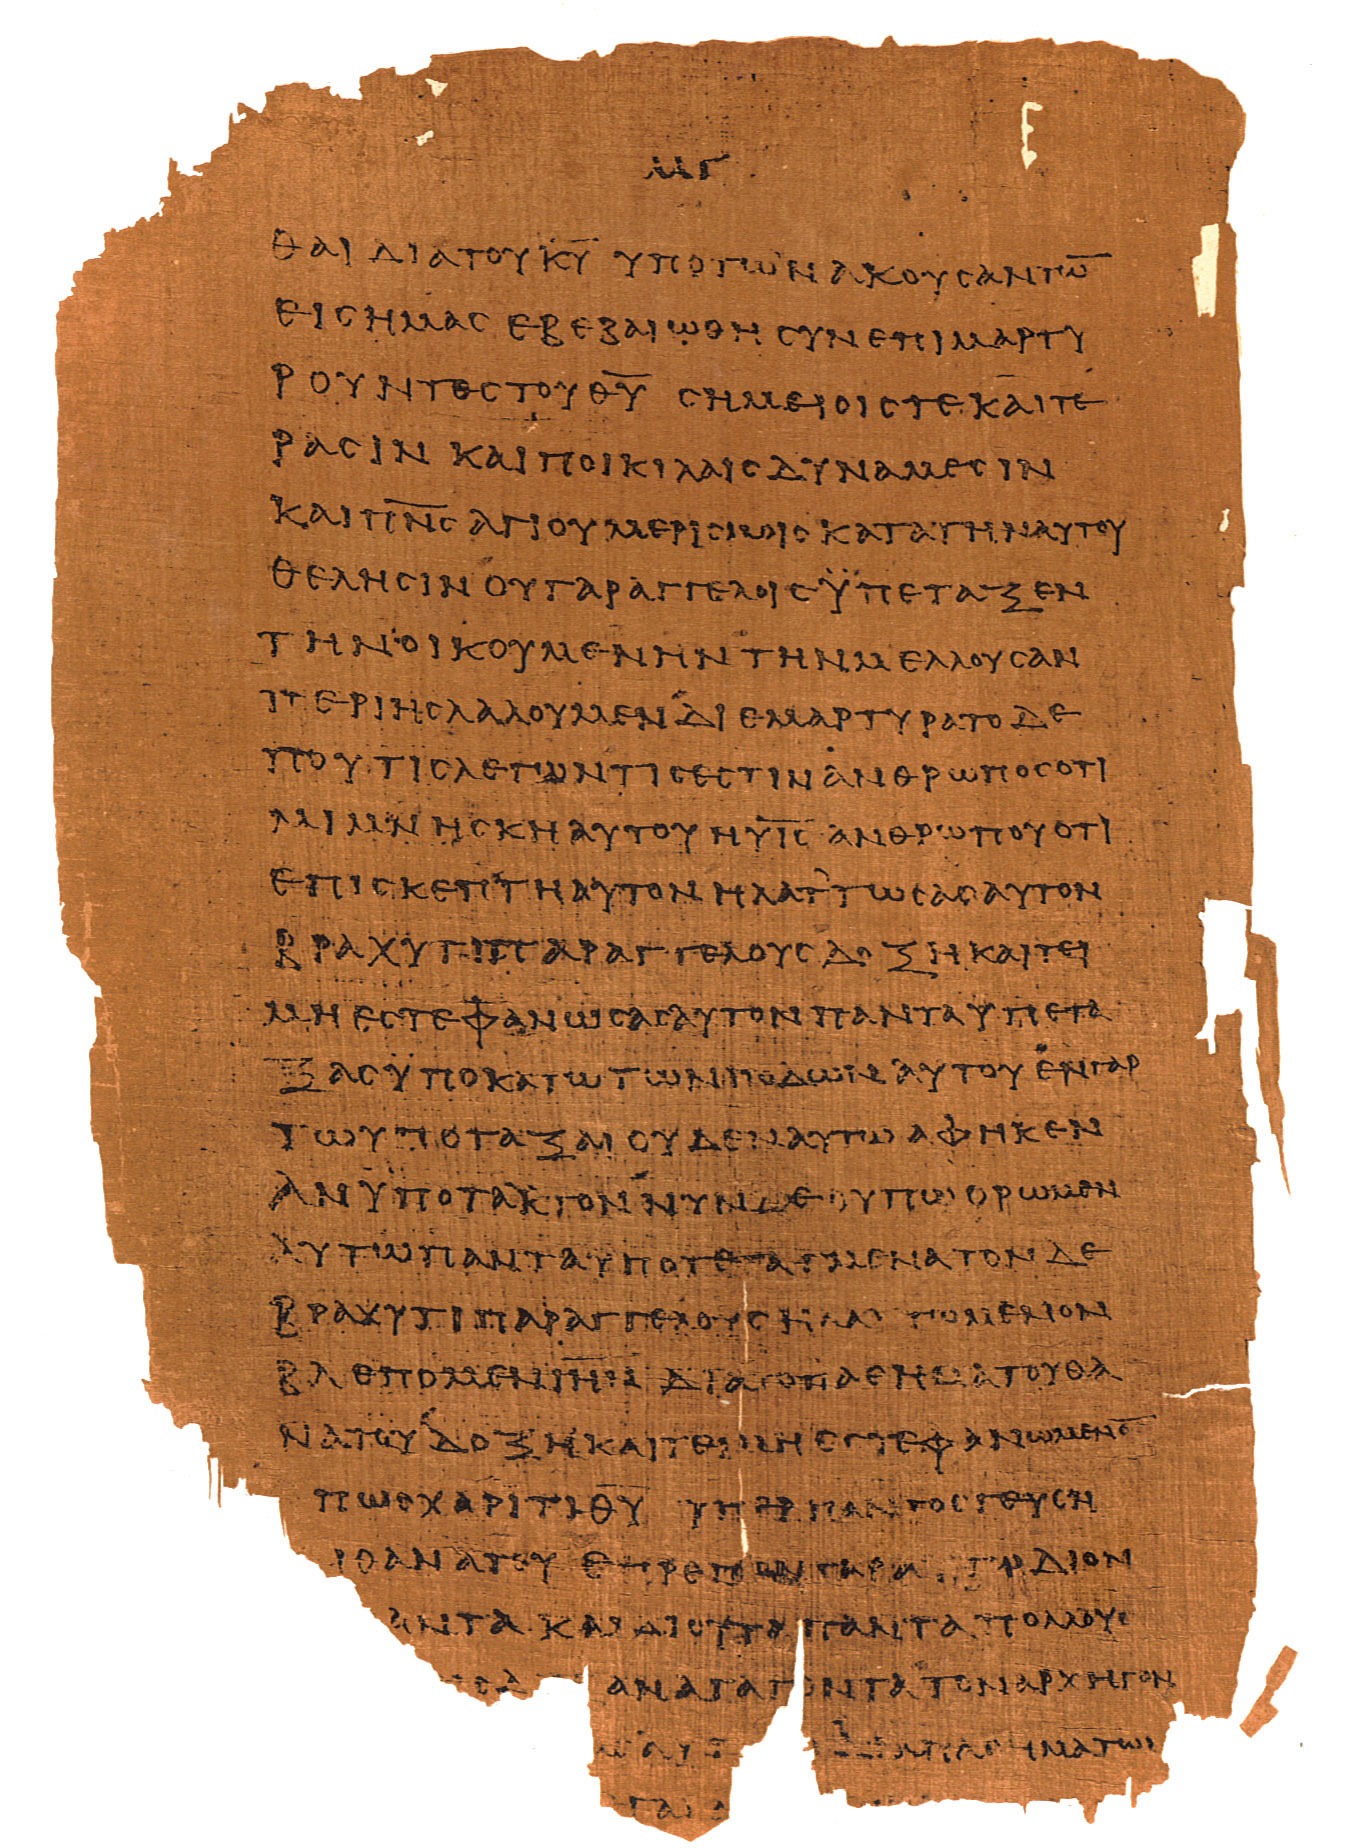 μγ
θαι δια του κ̅υ̅ υπο των ακουσαντω̅
εις ημας εβεβαιωθη συνεπιμαρτυ
ρουντες του θ̅υ̅ σημειοις τε και τε
ρασιν και ποικιλαις δυναμεσιν
και π̅ν̅ς̅ αγιου μερισμοις κατα την αυτου
θελησιν ου γαρ αγγελοις ϋπεταξεν
την οικουμενην την μελλουσαν
περι ης λαλουμεν διεμαρτυρατο δε
που τις λεγων τις εστιν ανθρωπος οτι
μιμνησκη αυτου η υ̅ι̅ς̅ ανθρωπου οτι
επισκεπτη αυτον ηλαττωσας αυτον
βραχυ τι παρ αγγελους δοξη και τει
μη εστεφανωσας αυτον παντα υπετα
ξας ϋποκατω των ποδων αυτου εν γαρ
τω υποταξαι ουδεν αυτω αφηκεν
ανϋποτακτον νυν δε ουπω ορωμεν
αυτω παντα υποτεταγμενα τον δε
βραχυ τι παρ αγγελους ηλαττωμενον
βλεπομεν ι̅η̅ν̅ δια το παθημα του θα
νατου δοξη και τειμη εστεφανωμενο̅
πως χαριτι θ̅υ̅ υπερ παντος γευση
θανατου επρεπεν γαρ δι ον
παντα και δι ου τα παντα πολλους
αναγαγοντα τον αρχηγον
παθηματων